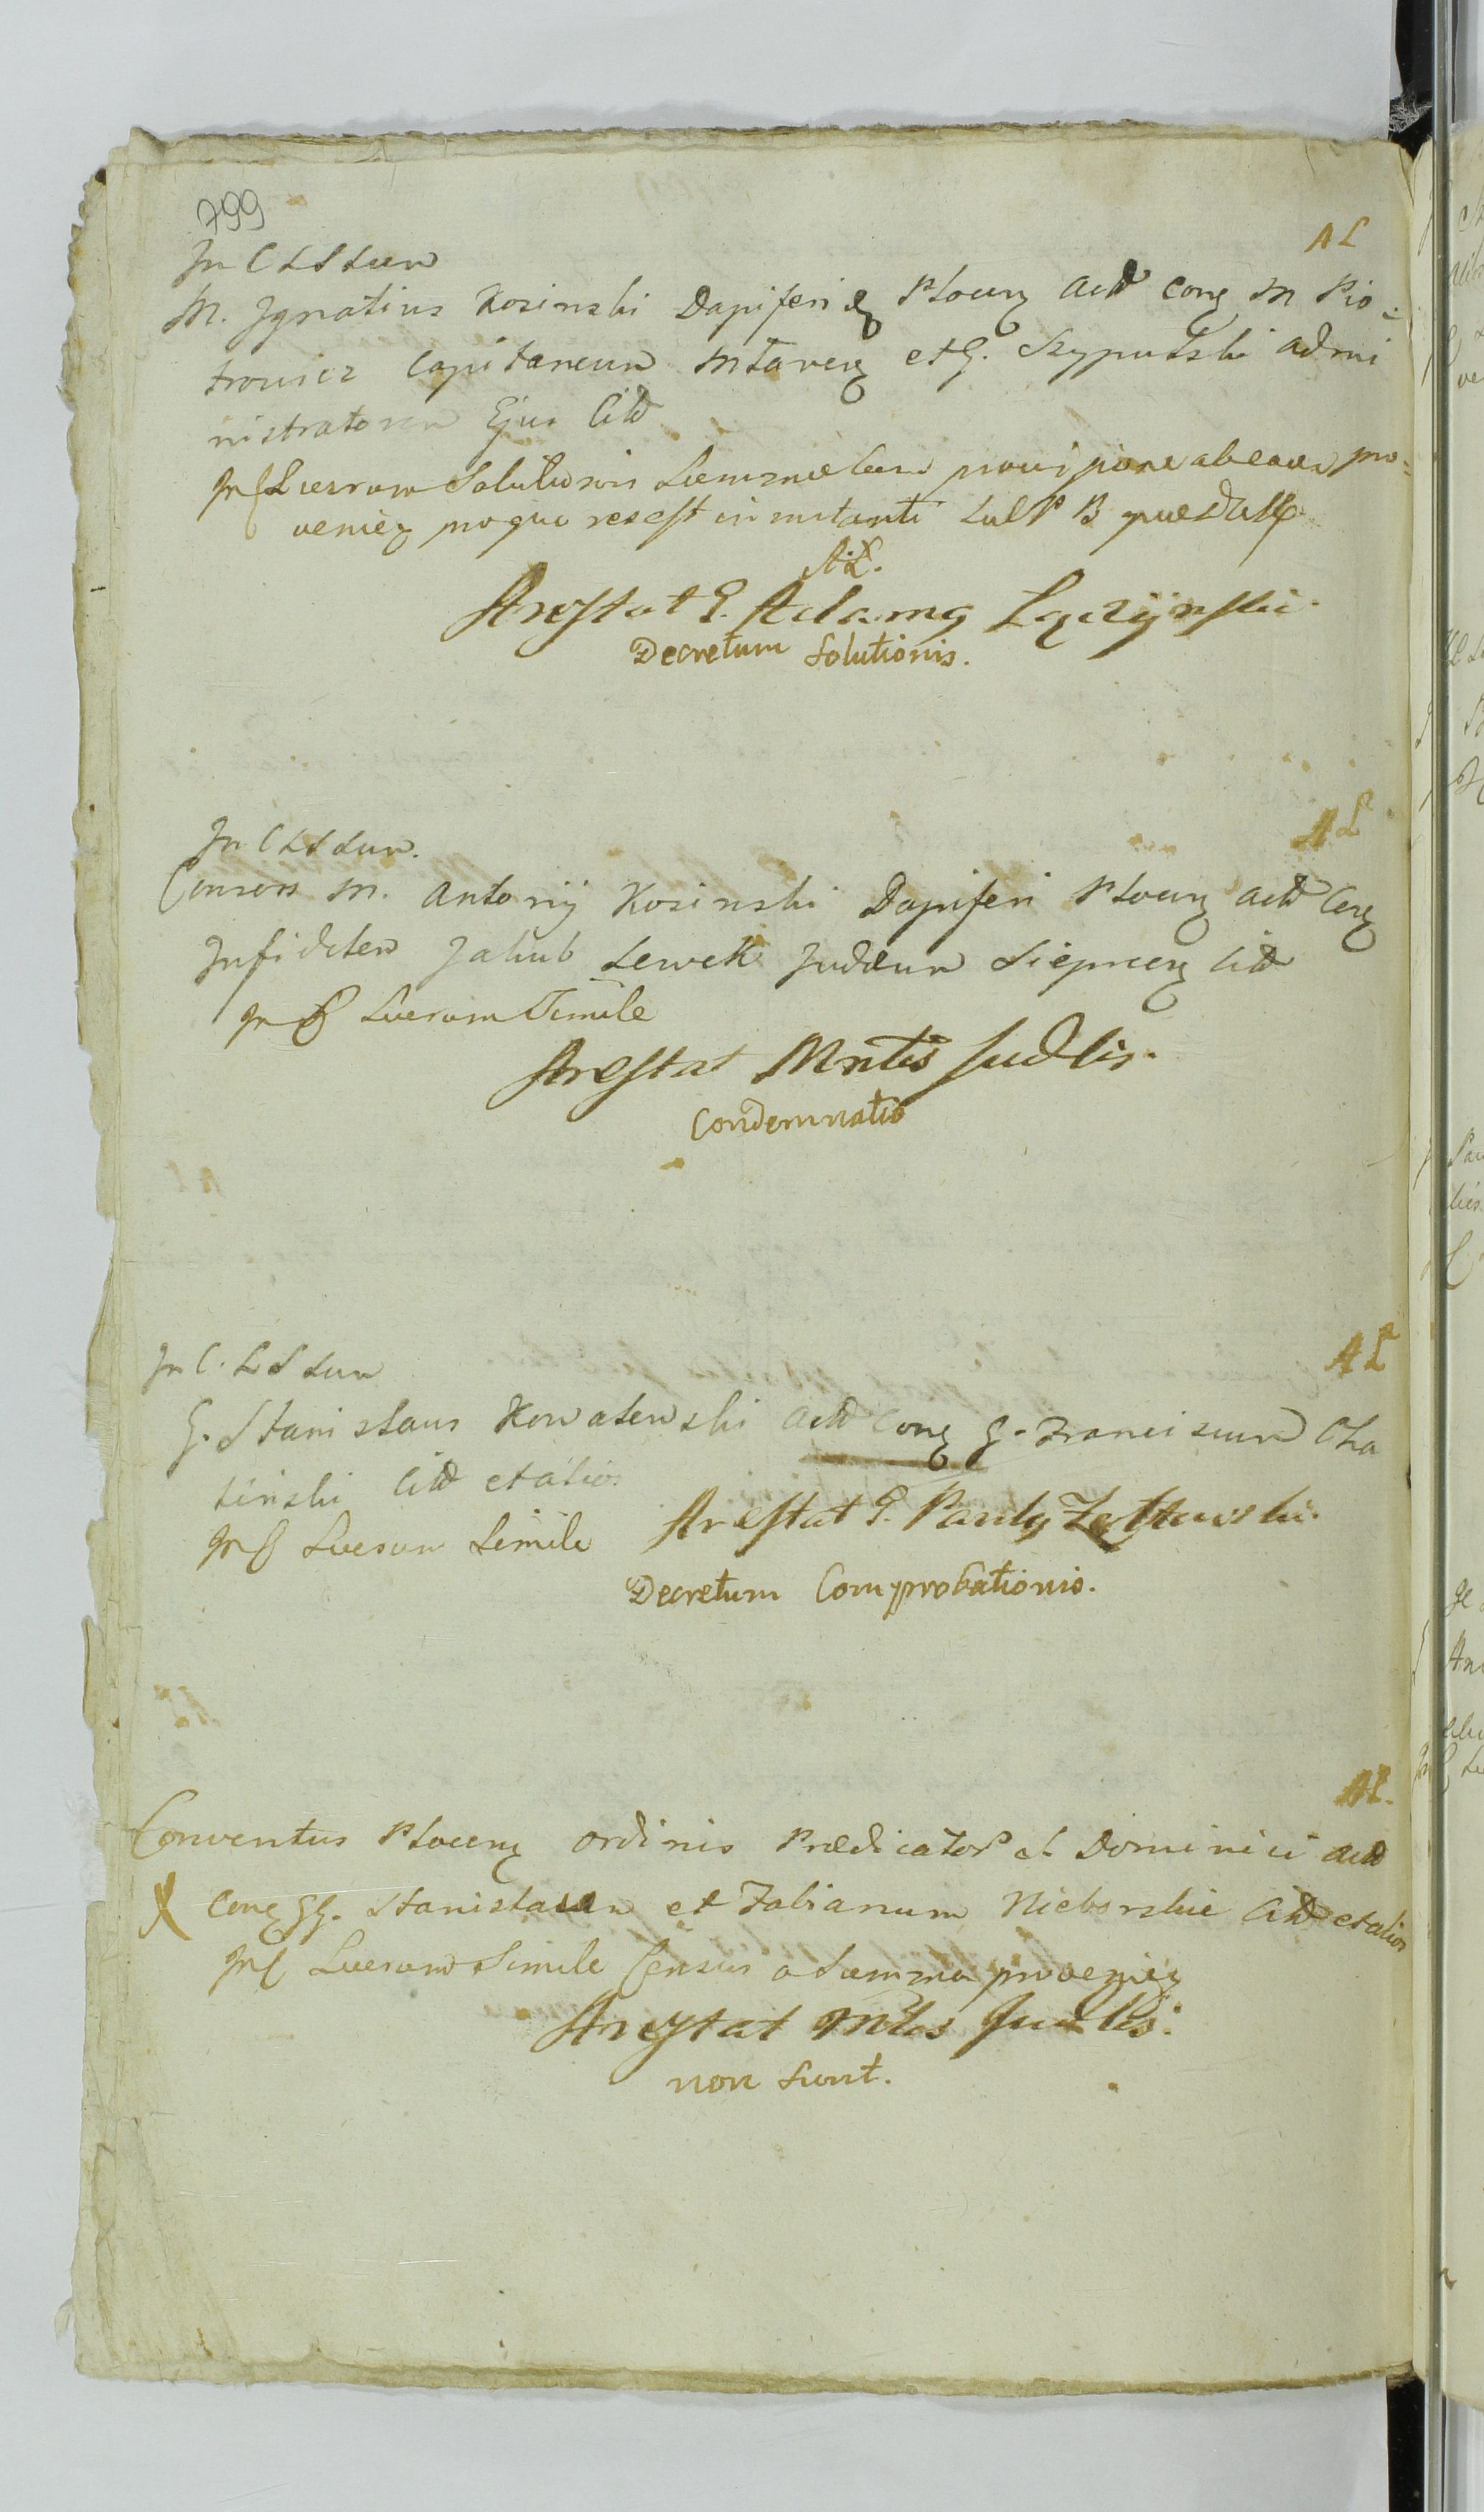 799
AL
In C L S Lun
M. Ignatius Kosinski Dapiferi Plocen Actt Con M Pio-
trowicz Capitaneum Mlaven et G. Szypulski admi
nistratorem Ejus Citt
Solutionis provisione ab eadem pro-
venien pro qua res est
AL.
Arestat G. Adamq Łączÿnski
Decretum Solutionis.
AL
In C L S Lun.
Consors M. Antonij Kosinski Dapiferi Plocen Actt Con
Infidelem Jakub Lewek Judæum Siepricen Citt
Lucrum Simile
Arestat Mntis Judlis.
Condemnatio
AL
In C. L S Lun
G. Stanislaus Kowalewski Actt Con G. Franciscum Cha
linski Citt et alios
Lucrum Simile Arestat G. Paulq
Decretum Comprobationis.
AL.
Conventus Plocen Ordinis Prædicator S. Dominici Actt
X Con GG. Stanislaum et Fabianum Nieborskie Citt et alios
Lucrum Simile Census a Summa provenien
Arestat Mtis Judlis.
non sunt.